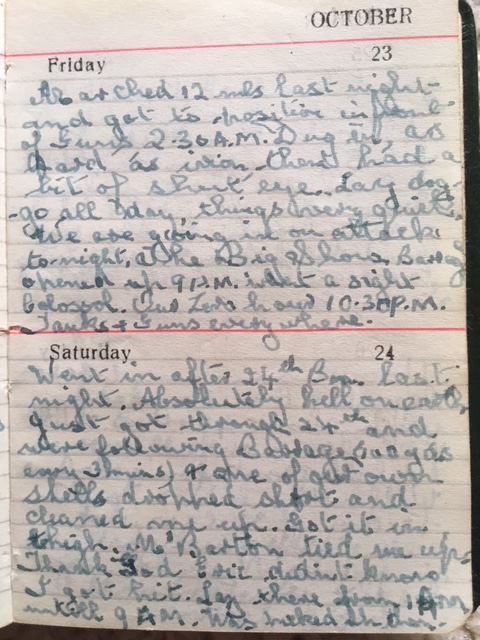 OCTOBER
Friday 23
Marched 12 mls last night
and got to position in front
of Guns 2.30 A.M. Dug in, as
hard as iron then had a
bit of shut eye. Lay dog-
-go all day, things very quiet.
We are going in on attack
to-night. The Big Show, Barrage
opened up 9 P.M. what a sight
Our Zero hour 10.30 P.M.
Tanks + Guns everywhere.
Saturday 24
Went in after 24th Bn. last
night. Absolutely hell on earth
Just got through 24th and
were following Barrage (100 yds
every 3 mins) & one of our own
shells dropped short and
cleaned me up. Got it in
thigh. Mc Barton tied me up.
Thank God Eric didn't know
I got hit. Lay there from 1 AM
untill 9 A.M. Was then.